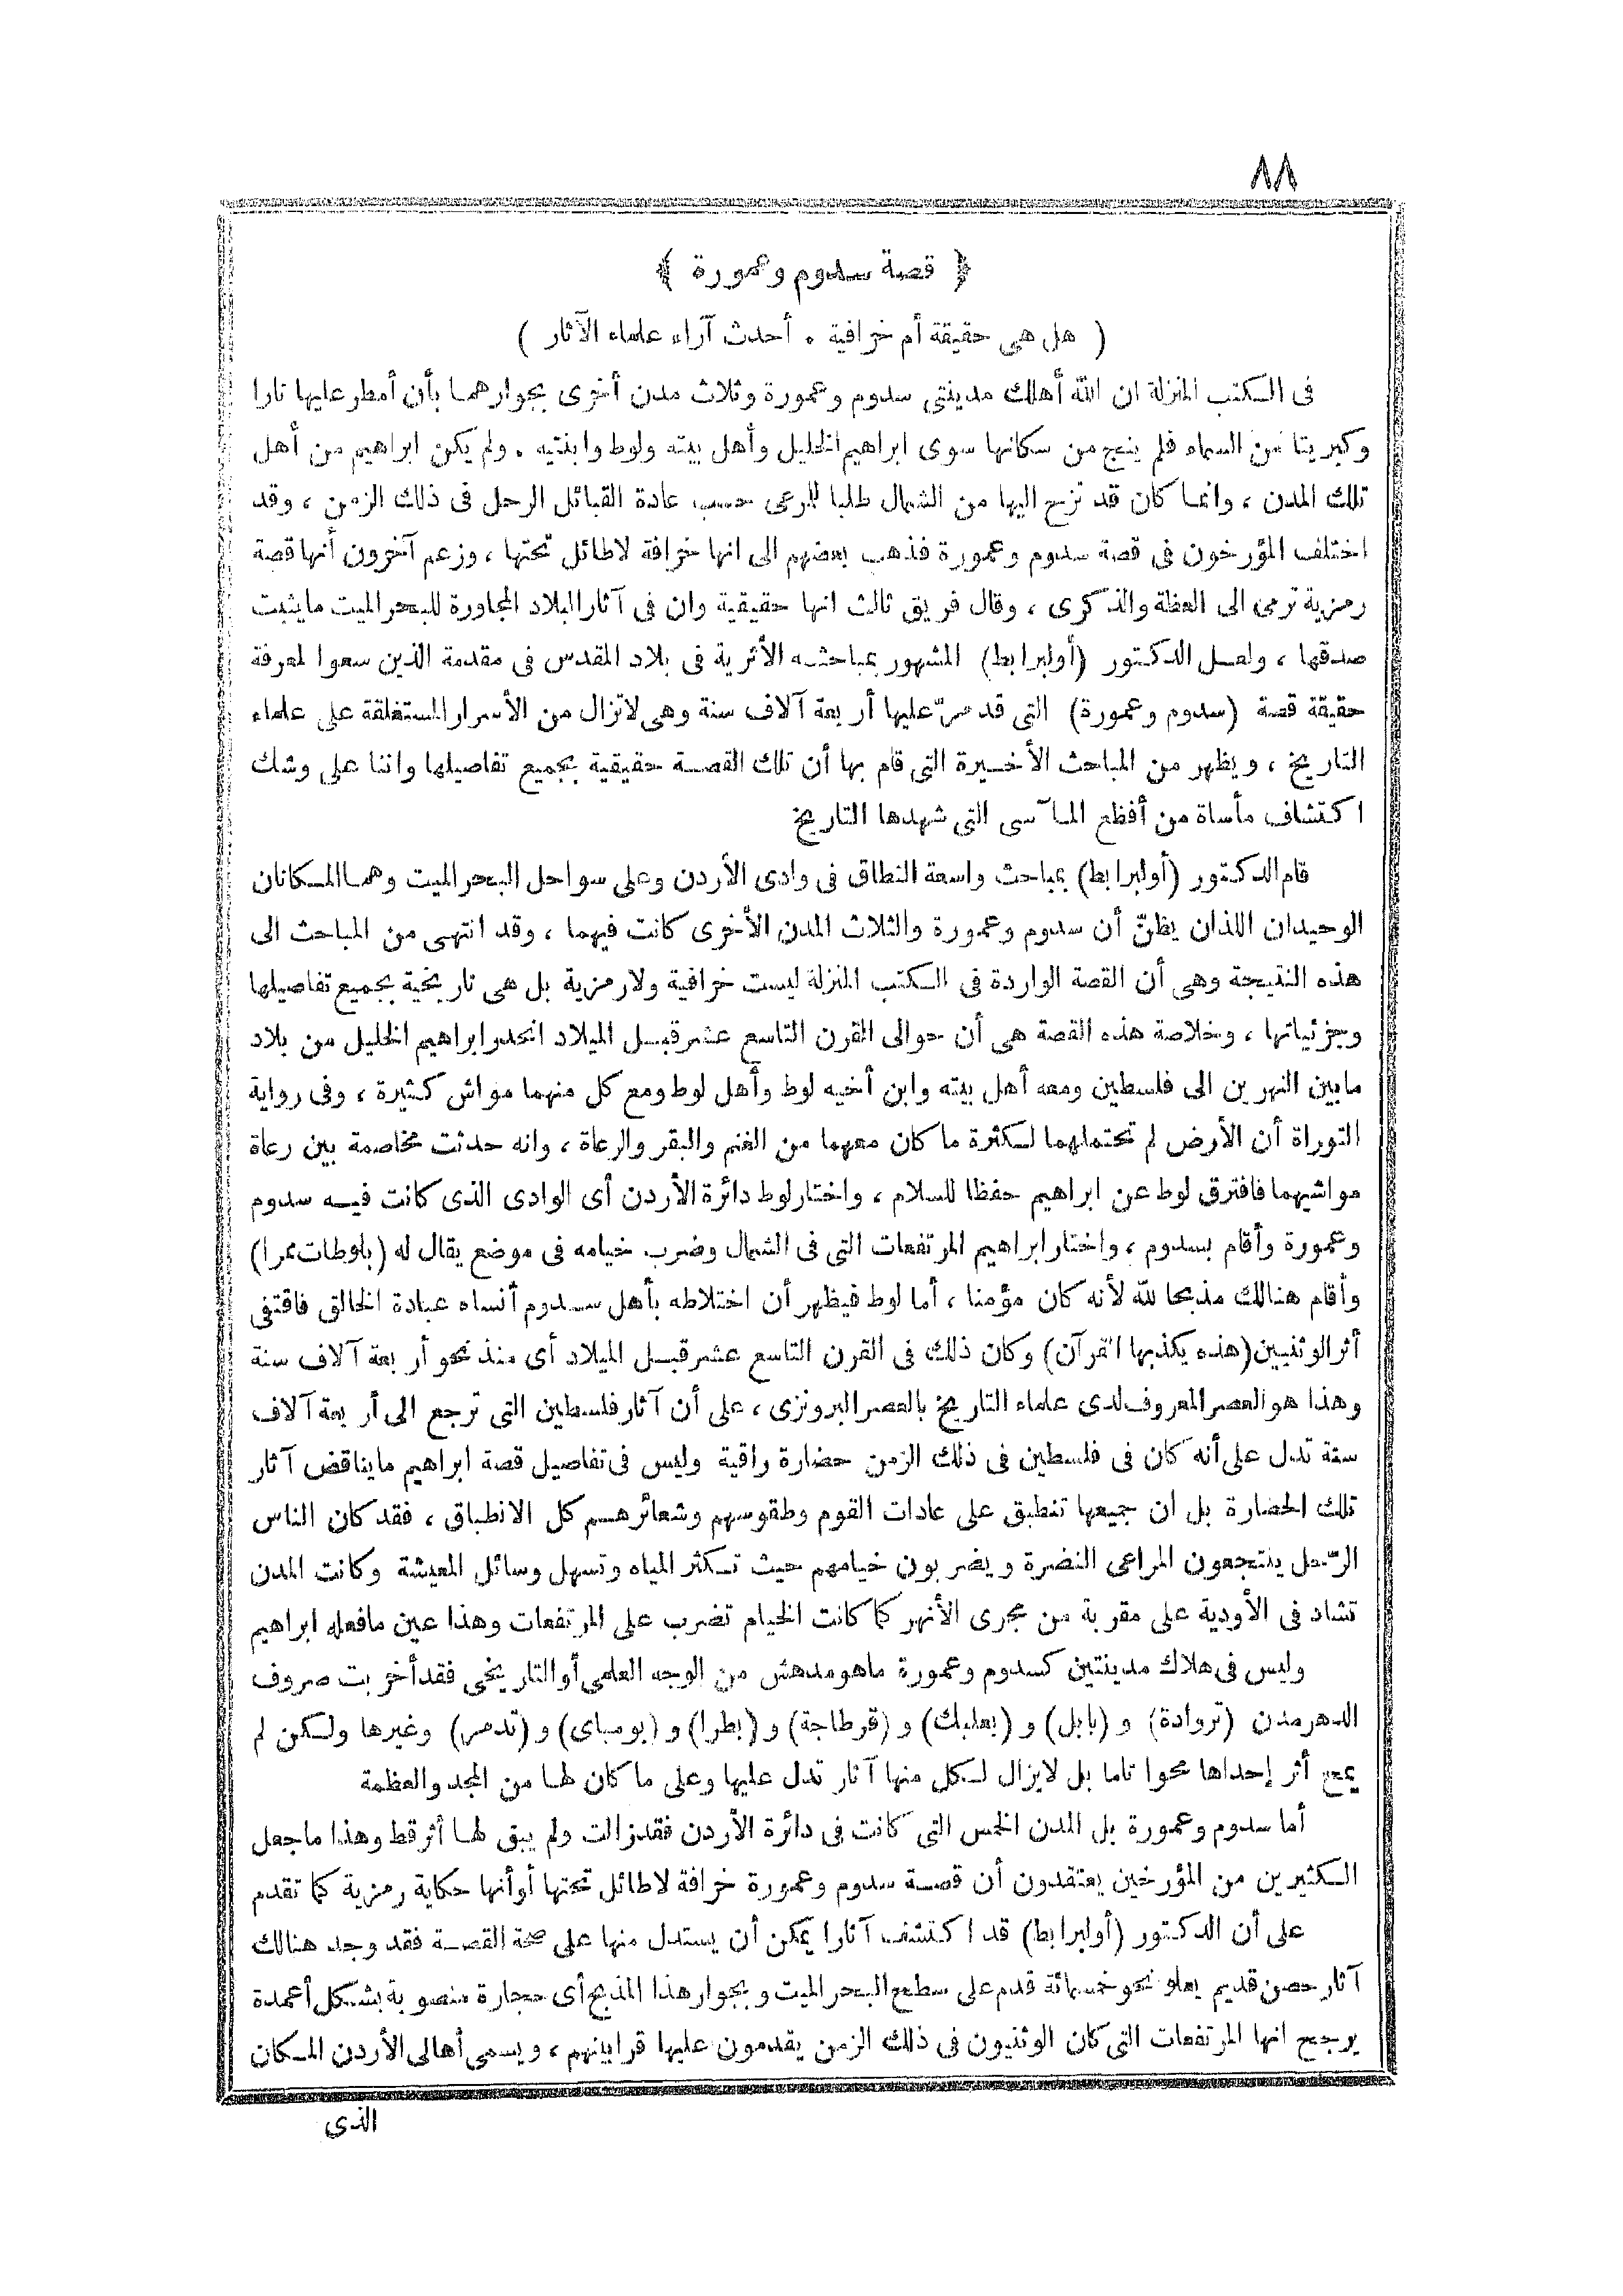 ٨٨
﴿ قصة سدوم وعمورة ﴾
( هل هى حقيقة أم خرافية . أحدث آراء علماء الآثار )
فى الكتب المنزلة ان الله أهلك مدينتى سدوم وعمورة وثلاث مدن أخرى بجوارهما بأن أمطر عليها نارا
وكبريتا من السماء فلم ينج من سكانها سوى ابراهيم الخليل وأهل بيته ولوط وابنتيه . ولم يكن ابراهيم من أهل
تلك المدن ، وانما كان قد نزح اليها من الشمال طلبا للرعى حسب عادة القبائل الرحل فى ذلك الزمن ، وقد
اختلف المؤرخون فى قصة سدوم وعمورة فذهب بعضهم الى انها خرافة لاطائل تحتها ، وزعم آخرون أنها قصة
رمزية ترمى الى العظة والذكرى ، وقال فريق ثالث انها حقيقية وان فى آثار البلاد المجاورة للبحر الميت مايثبت
صدقها ، ولعل الدكتور (أولبرابط) المشهور بمباحثه الأثرية فى بلاد المقدس فى مقدمة الذين سعوا لمعرفة
حقيقة قصة (سدوم وعمورة) التى قد مرّ عليها أربعة آلاف سنة وهى لاتزال من الأسرار المستغلقة على علماء
التاريخ ، ويظهر من المباحث الأخيرة التى قام بها أن تلك القصة حقيقية بجميع تفاصيلها واننا على وشك
اكتشاف مأساة من أفظع المآسى التى شهدها التاريخ
قام الدكتور (أولبرابط) بمباحث واسعة النطاق فى وادى الأردن وعلى سواحل البحر الميت وهما المكانان
الوحيدان اللذان يظنّ أن سدوم وعمورة والثلاث المدن الأخرى كانت فيهما ، وقد انتهى من المباحث الى
هذه النتيجة وهى أن القصة الواردة فى الكتب المنزلة ليست خرافية ولارمزية بل هى تاريخية بجميع تفاصيلها
وجزئياتها ، وخلاصة هذه القصة هى أن حوالى القرن التاسع عشر قبل الميلاد انحدر ابراهيم الخليل من بلاد
مابين النهرين الى فلسطين ومعه أهل بيته وابن أخيه لوط وأهل لوط ومع كل منهما مواش كثيرة ، وفى رواية
التوراة أن الأرض لم تحتملهما لكثرة ما كان معهما من الغنم والبقر والرعاة ، وانه حدثت مخاصمة بين رعاة
مواشيهما فافترق لوط عن ابراهيم حفظا للسلام ، واختار لوط دائرة الأردن أى الوادى الذى كانت فيه سدوم
وعمورة وأقام بسدوم ، واختار ابراهيم المرتفعات التى فى الشمال وضرب خيامه فى موضع يقال له (بلوطات ممرا)
وأقام هنالك مذبحا لله لأنه كان مؤمنا ، أما لوط فيظهر أن اختلاطه بأهل سدوم أنساه عبادة الخالق فاقتفى
أثر الوثنيين (هذه يكذبها القرآن) وكان ذلك فى القرن التاسع عشر قبل الميلاد أى منذ نحو أربعة آلاف سنة
وهذا هو العصر المعروف لدى علماء التاريخ بالعصر البرونزى ، على أن آثار فلسطين التى ترجع الى أربعة آلاف
سنة تدل على أنه كان فى فلسطين فى ذلك الزمن حضارة راقية وليس فى تفاصيل قصة ابراهيم مايناقض آثار
تلك الحضارة بل ان جميعها تنطبق على عادات القوم وطقوسهم وشعائرهم كل الانطباق ، فقد كان الناس
الرّحل ينتجعون المراعى النضرة ويضربون خيامهم حيث تكثر المياه وتسهل وسائل المعيشة وكانت المدن
تشاد فى الأودية على مقربة من مجرى الأنهر كما كانت الخيام تضرب على المرتفعات وهذا عين مافعله ابراهيم
وليس فى هلاك مدينتين كسدوم وعمورة ماهو مدهش من الوجه العلمى أو التاريخى فقد أخربت صروف
الدهر مدن (تروادة) و (بابل) و (بعلبك) و (قرطاجة) و (بطرا) و (بومباى) و (تدمر) وغيرها ولكن لم
يمح أثر إحداها محوا تاما بل لايزال لكل منها آثار تدل عليها وعلى ما كان لها من المجد والعظمة
أما سدوم وعمورة بل المدن الخمس التى كانت فى دائرة الأردن فقد زالت ولم يبق لها أثر قط وهذا ماجعل
الكثيرين من المؤرخين يعتقدون أن قصة سدوم وعمورة خرافة لاطائل تحتها أو أنها حكاية رمزية كما تقدم
على أن الدكتور (أولبرابط) قد اكتشف آثارا يمكن أن يستدل منها على صحة القصة فقد وجد هنالك
آثار حصن قديم يعلو نحو خمسمائة قدم على سطح البحر الميت وبجوار هذا المذبح أى حجارة منصوبة بشكل أعمدة
يرجح انها المرتفعات التى كان الوثنيون فى ذلك الزمن يقدمون عليها قرابينهم ، ويسمى أهالى الأردن المكان
الذى